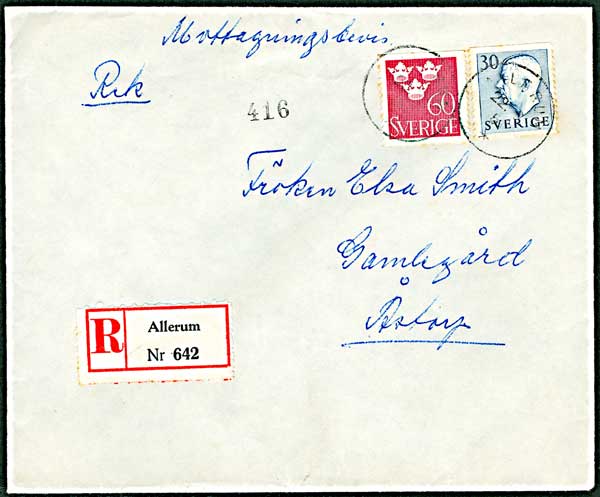 Mottagningsbevis
Rek
416
60
SVERIGE
30
SVERIGE
Fröken Elsa Smith
Gamlegård
Åstorp
R
Allerum
Nr 642